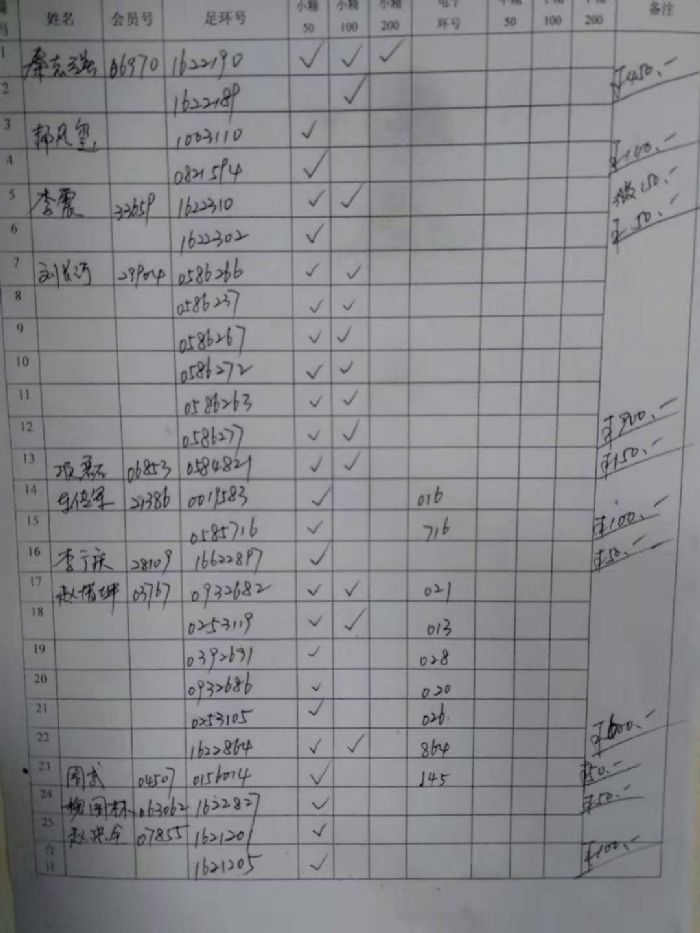 编号 姓名 会员号 足环号 小精 50 小精 100 小精 200 电子环号 50 100 200 备注
1 秦志强 06970 1622190 ✓ ✓ ✓
2 1622189 ✓ ¥450.-
3 郝凤玺 1003110 ✓
4 0821594 ✓ ¥100.-
5 李震 33659 1622310 ✓ ✓ 150.-
6 1622302 ✓ ¥50.-
7 29904 0586266 ✓ ✓
8 0586237 ✓ ✓
9 0586267 ✓ ✓
10 0586272 ✓ ✓
11 0586263 ✓ ✓
12 0586277 ✓ ✓ ¥900.-
13 06853 0584821 ✓ ✓ ¥150.-
14 21386 0019583 ✓ 016
15 0585716 ✓ 716 ¥100.-
16 李宁庆 28109 16622897 ✓ ¥50.-
17 03767 0932682 ✓ ✓ 021
18 0253119 ✓ ✓ 013
19 0392691 ✓ 028
20 0932686 ✓ 020
21 0253105 ✓ 026
22 1622864 ✓ ✓ 864 ¥600.-
23 周武 04507 0156014 ✓ 145 ¥50.-
24 槐国林 063062 1622827 ✓ ¥50.-
25 07855 1621201 ✓
合计 1621205 ✓ ¥100.-